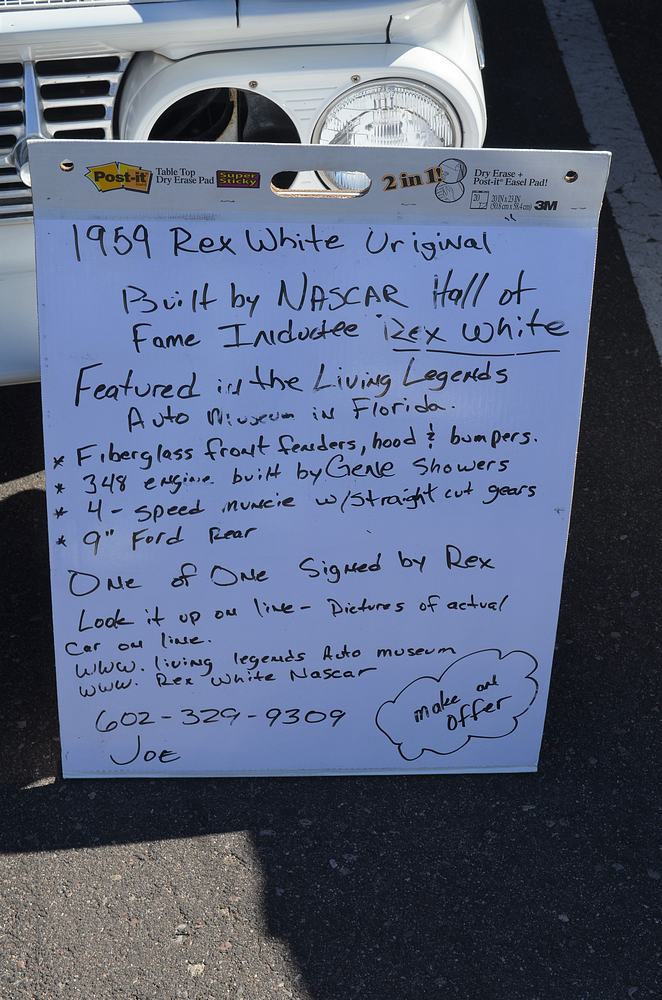 Post-it Table Top Dry Erase Pad Super Sticky 2 in 1! Dry Erase + Post-it® Easel Pad!
20 IN x 23 IN (50.8 cm x 58.4 cm) 3M
1959 Rex White Original
Built by NASCAR Hall of
Fame Inductee Rex White
Featured in the Living Legends
Auto Museum in Florida.
* Fiberglass front fenders, hood & bumpers.
* 348 engine built by Gene Showers
* 4-speed muncie w/straight cut gears
* 9" Ford Rear
One of One Signed by Rex
Look it up on line - Pictures of actual
Car on line.
www. living legends Auto museum
www. Rex White Nascar
602-329-9309
Joe
make an
Offer